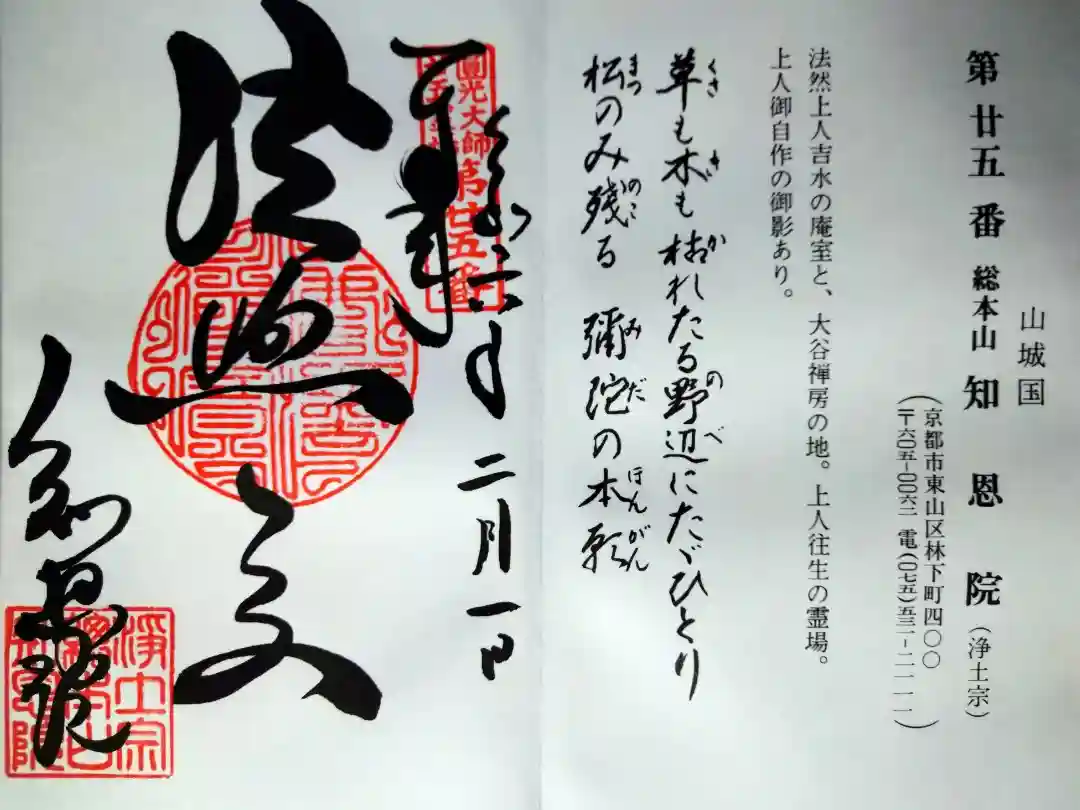 山城国
第廿五番 総本山 知恩院(浄土宗)
(京都市東山区林下町四〇〇)
(〒六〇五-〇〇六二 電(〇七五)五三一-二一一一)
法然上人吉水の庵室と、大谷禅房の地。上人往生の霊場。
上人御自作の御影あり。
くさ き か のべ
草も木も枯れたる野辺にたゞひとり
まつ のこ みだ ほんがん
松のみ残る 彌陀の本願
圓光大師
第廿五番
六年 二月一日
知恩院
淨土宗
總本山
知恩院